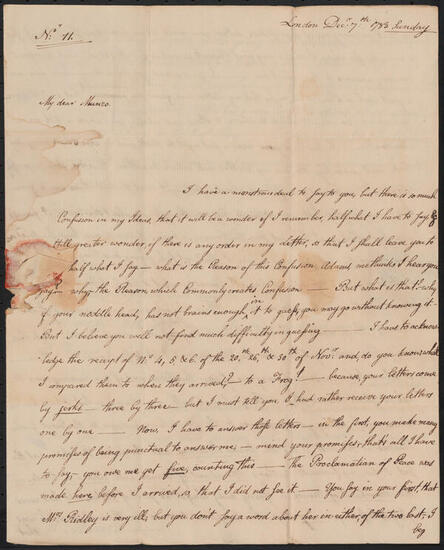 London Decr. 7th. 1783 Sunday
No. 11.
My dear Munro.
I have a monstrous deal to say to you, but there is so much
Confusion in my Ideas, that it will be a wonder if I remember, half what I have to say, &
still greater wonder, if there is any order in my Letter, so that I shall leave you to
half what I say — what is the Reason of this Confusion Adams methinks I hear you
say — why — the Reason which Commonly creates Confusion — But what is that — why
if your noddle head, has not brains enough, in it to guess, you may go without knowing it.
But I believe you will not find much difficulty in guessing — I have to acknow
ledge the receipt of No. 4, 5 & 6. of the 20th. 26th. & 30th of Novr. and, do you know what
I compared them to when they arrived? — to a Frog! — because, your letters come
by jerks — three by three — but I must tell you, I had rather receive your Letters
one by one — Now, I have to answer those letters — in the first, you made many
promises of being punctual to answer me, — mend your promises, that's all I have
to say, — you owe me yet five, counting this — The Proclamation of Peace was
made here before I arrived, so, that I did not see it — You say in your first, that
Mrs. Ridley is very ill, but you don't say a word about her in either of the two last: I
beg